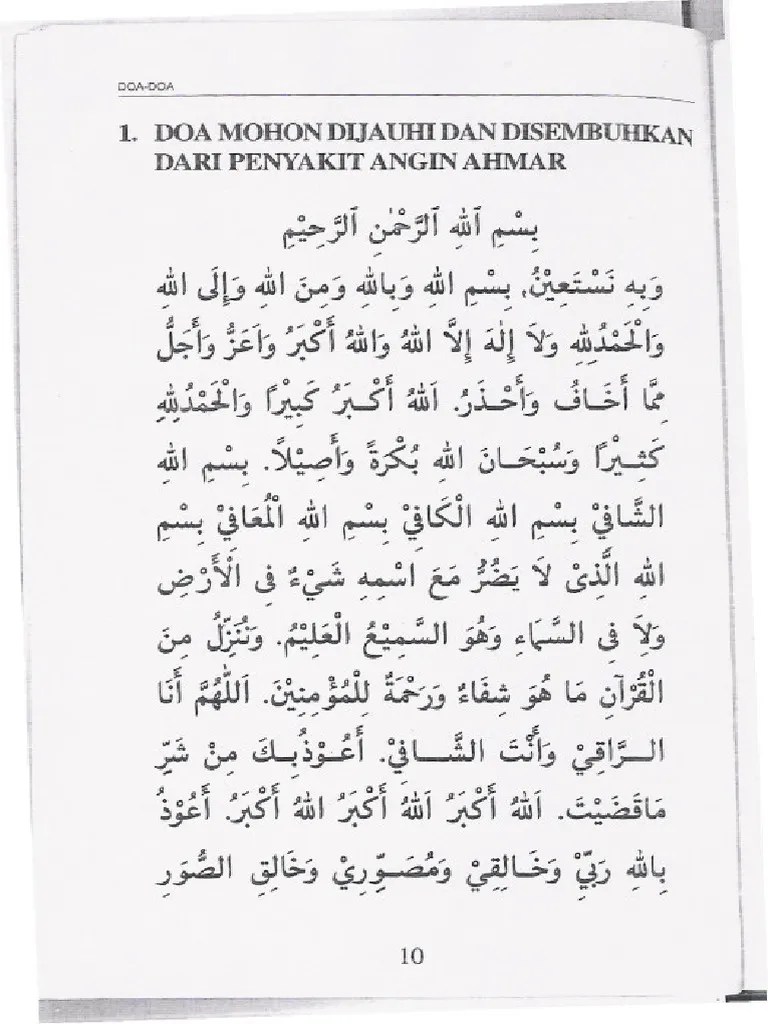 DOA-DOA
1. DOA MOHON DIJAUHI DAN DISEMBUHKAN
DARI PENYAKIT ANGIN AHMAR
بِسْمِ ٱللهِ ٱلرَّحْمٰنِ ٱلرَّحِيْمِ
وَبِهِ نَسْتَعِيْنُ, بِسْمِ اللهِ وَبِاللهِ وَمِنَ اللهِ وَإِلَى اللهِ
وَالْحَمْدُلِلهِ وَلَا إِلٰهَ إِلَّا اللهُ وَاللهُ أَكْبَرُ وَاَعَزُّ وَأَجَلُّ
مِمَّا أَخَافُ وَأَحْذَرُ. اَللهُ أَكْبَرُ كَبِيْرًا وَالْحَمْدُلِلهِ
كَثِيْرًا وَسُبْحَانَ اللهِ بُكْرَةً وَأَصِيْلًا. بِسْمِ اللهِ
الشَّافِيْ بِسْمِ اللهِ الْكَافِيْ بِسْمِ اللهِ الْمُعَافِيْ بِسْمِ
اللهِ الَّذِىْ لَا يَضُرُّ مَعَ اسْمِهِ شَيْءٌ فِى الْأَرْضِ
وَلَا فِى السَّمَاءِ وَهُوَ السَّمِيْعُ الْعَلِيْمُ. وَنُنَزِّلُ مِنَ
الْقُرْآنِ مَا هُوَ شِفَاءٌ وَرَحْمَةٌ لِلْمُؤْمِنِيْنَ. اَللّٰهُمَّ أَنَا
الرَّاقِيْ وَأَنْتَ الشَّافِيْ. أَعُوْذُبِكَ مِنْ شَرِّ
مَاقَضَيْتَ. اَللهُ أَكْبَرُ اَللهُ أَكْبَرُ اللهُ أَكْبَرُ. أَعُوْذُ
بِاللهِ رَبِّيْ وَخَالِقِيْ وَمُصَوِّرِيْ وَخَالِقِ الصُّوَرِ
10